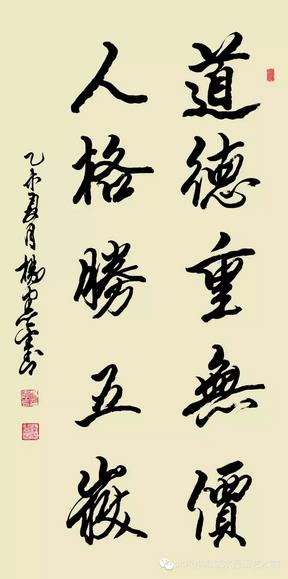 道德重無價
人格勝五嶽
乙未夏月楊